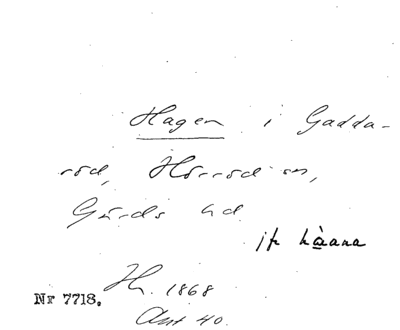 Hagen i Gadda-
röd, Hörröd sn,
Gärds hd
jfr hàana
Hh. 1868
Nr 7718.
Ant 40.